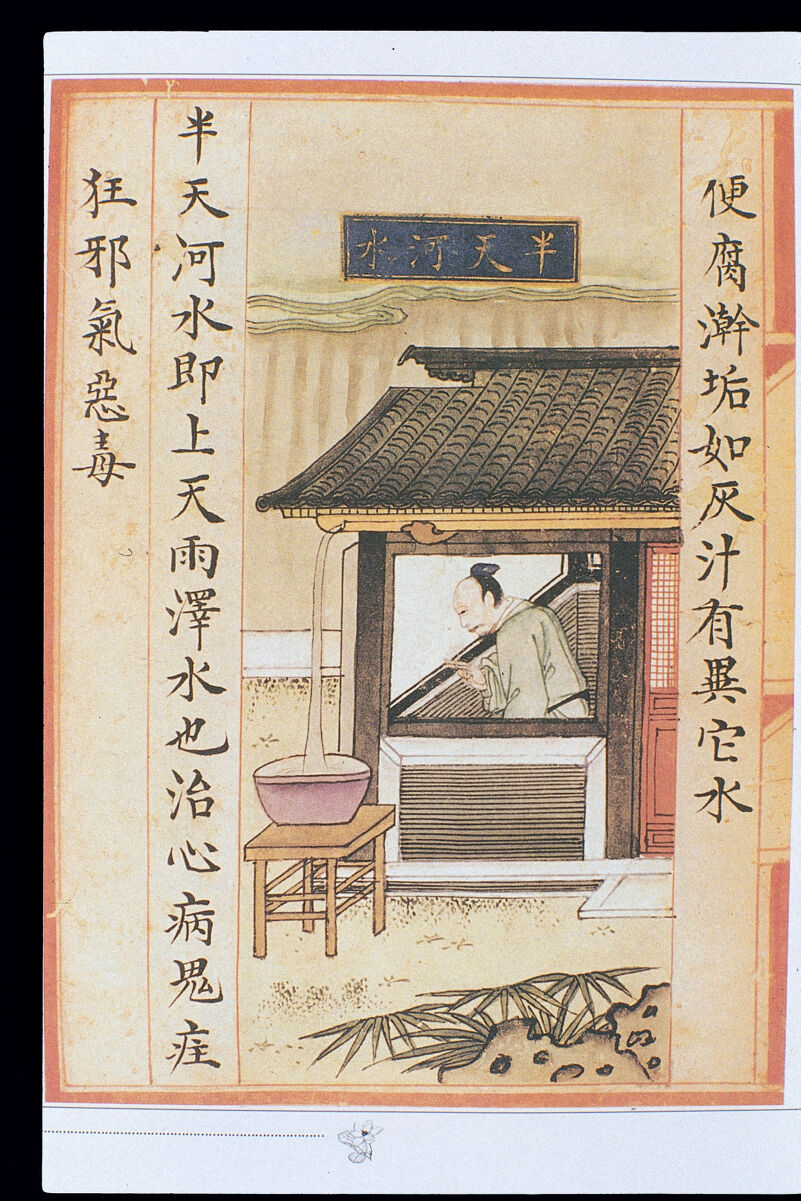 便腐澣垢如灰汁有異它水
半天河水
半天河水即上天雨澤水也治心病鬼疰
狂邪氣惡毒